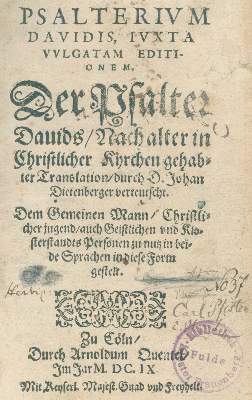 PSALTERIVM
DAVIDIS, IVXTA
VVLGATAM EDITI-
ONEM.
Der Psalter
Dauids/ Nach alter in
Christlicher Kyrchen gehab-
ter Translation/ durch D. Johan
Dietenberger verteutscht.
Dem Gemeinen Mann/ Christli-
cher jugend/ auch Geistlichen vnd Klo-
sterstandes Personen zu nutz in bei-
de Sprachen in diese Form
gestelt.
No 37
Carl
Zu Cöln/
Durch Arnoldum Quentel/
Im Jar M. DC. IX
Mit Keyserl. Majest. Gnad vnd Freyheit.
Fulda